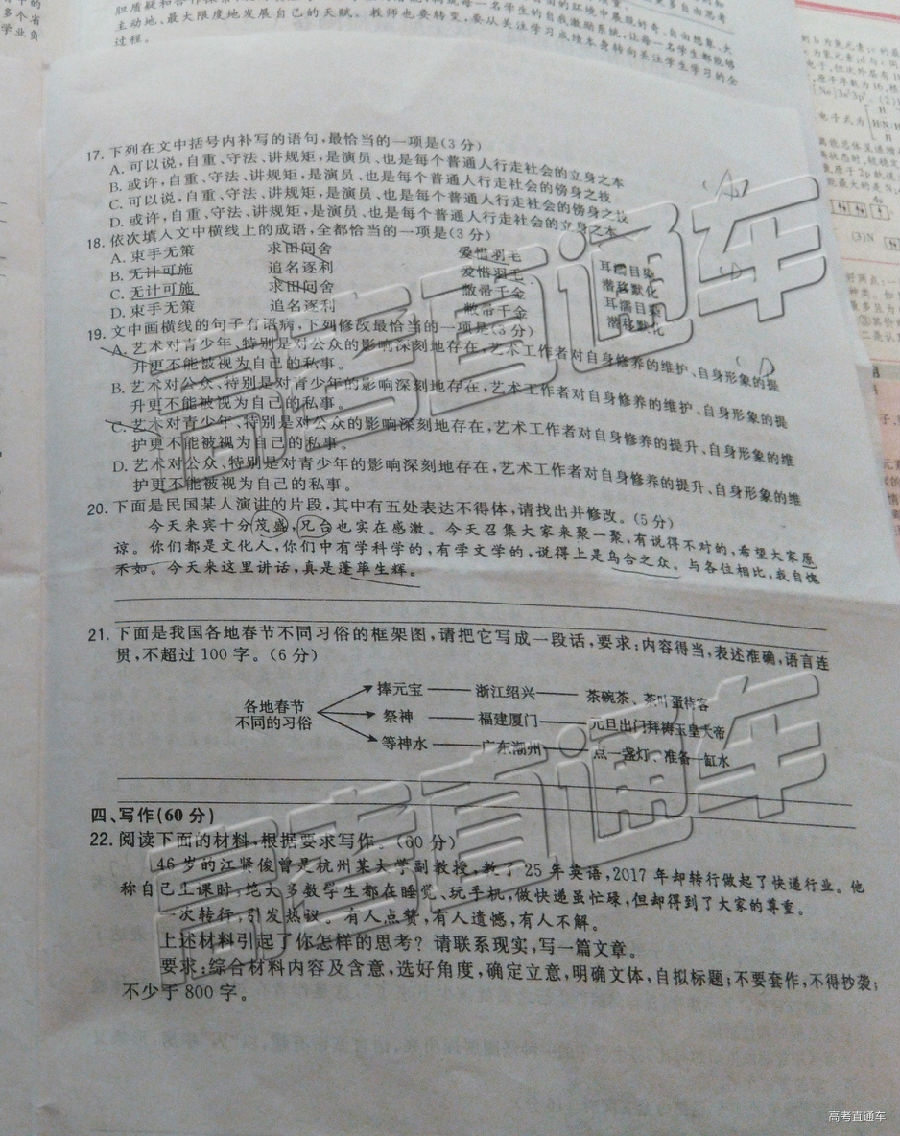 胆质疑和合作探
主动地、最大限度地发展自己的天赋。教师也要转变,要从关注学习成绩本身转向关注学生学习的全
过程。
17. 下列在文中括号内补写的语句,最恰当的一项是(3分)
A. 可以说,自重、守法、讲规矩,是演员、也是每个普通人行走社会的立身之本
B. 或许,自重、守法、讲规矩,是演员、也是每个普通人行走社会的傍身之技
C. 可以说,自重、守法、讲规矩,是演员、也是每个普通人行走社会的傍身之技
D. 或许,自重、守法、讲规矩,是演员、也是每个普通人行走社会的立身之本
18. 依次填入文中横线上的成语,全都恰当的一项是(3分)
A. 束手无策 求田问舍 爱惜羽毛 耳濡目染
B. 无计可施 追名逐利 爱惜羽毛 潜移默化
C. 无计可施 求田问舍 敝帚千金 耳濡目染
D. 束手无策 追名逐利 敝帚千金 潜移默化
19. 文中画横线的句子有语病,下列修改最恰当的一项是(3分)
A. 艺术对青少年、特别是对公众的影响深刻地存在,艺术工作者对自身修养的维护、自身形象的提
升更不能被视为自己的私事。
B. 艺术对公众、特别是对青少年的影响深刻地存在,艺术工作者对自身修养的维护、自身形象的提
升更不能被视为自己的私事。
C. 艺术对青少年、特别是对公众的影响深刻地存在,艺术工作者对自身修养的提升、自身形象的维
护更不能被视为自己的私事。
D. 艺术对公众、特别是对青少年的影响深刻地存在,艺术工作者对自身修养的提升、自身形象的维
护更不能被视为自己的私事。
20. 下面是民国某人演讲的片段,其中有五处表达不得体,请找出并修改。(5分)
今天来宾十分茂盛,兄台也实在感激。今天召集大家来聚一聚,有说得不对的,希望大家原
谅。你们都是文化人,你们中有学科学的,有学文学的,说得上是乌合之众。与各位相比,我自愧
不如。今天来这里讲话,真是蓬荜生辉。
21. 下面是我国各地春节不同习俗的框架图,请把它写成一段话,要求:内容得当,表述准确,语言连
贯,不超过100字。(6分)
各地春节
不同的习俗
捧元宝 浙江绍兴 茶碗茶、茶叶蛋待客
祭神 福建厦门 元旦出门拜祷玉皇大帝
等神水 广东潮州 点一盏灯、准备一缸水
四、写作(60分)
22. 阅读下面的材料,根据要求写作。(60分)
46岁的江贤俊曾是杭州某大学副教授,教了25年英语,2017年却转行做起了快递行业。他
称自己上课时,绝大多数学生都在睡觉、玩手机,做快递虽忙碌,但却得到了大家的尊重。
一次转行,引发热议。有人点赞,有人遗憾,有人不解。
上述材料引起了你怎样的思考?请联系现实,写一篇文章。
要求:综合材料内容及含意,选好角度,确定立意,明确文体,自拟标题;不要套作,不得抄袭;
不少于800字。
高考直通车
高考直通车
高考直通车